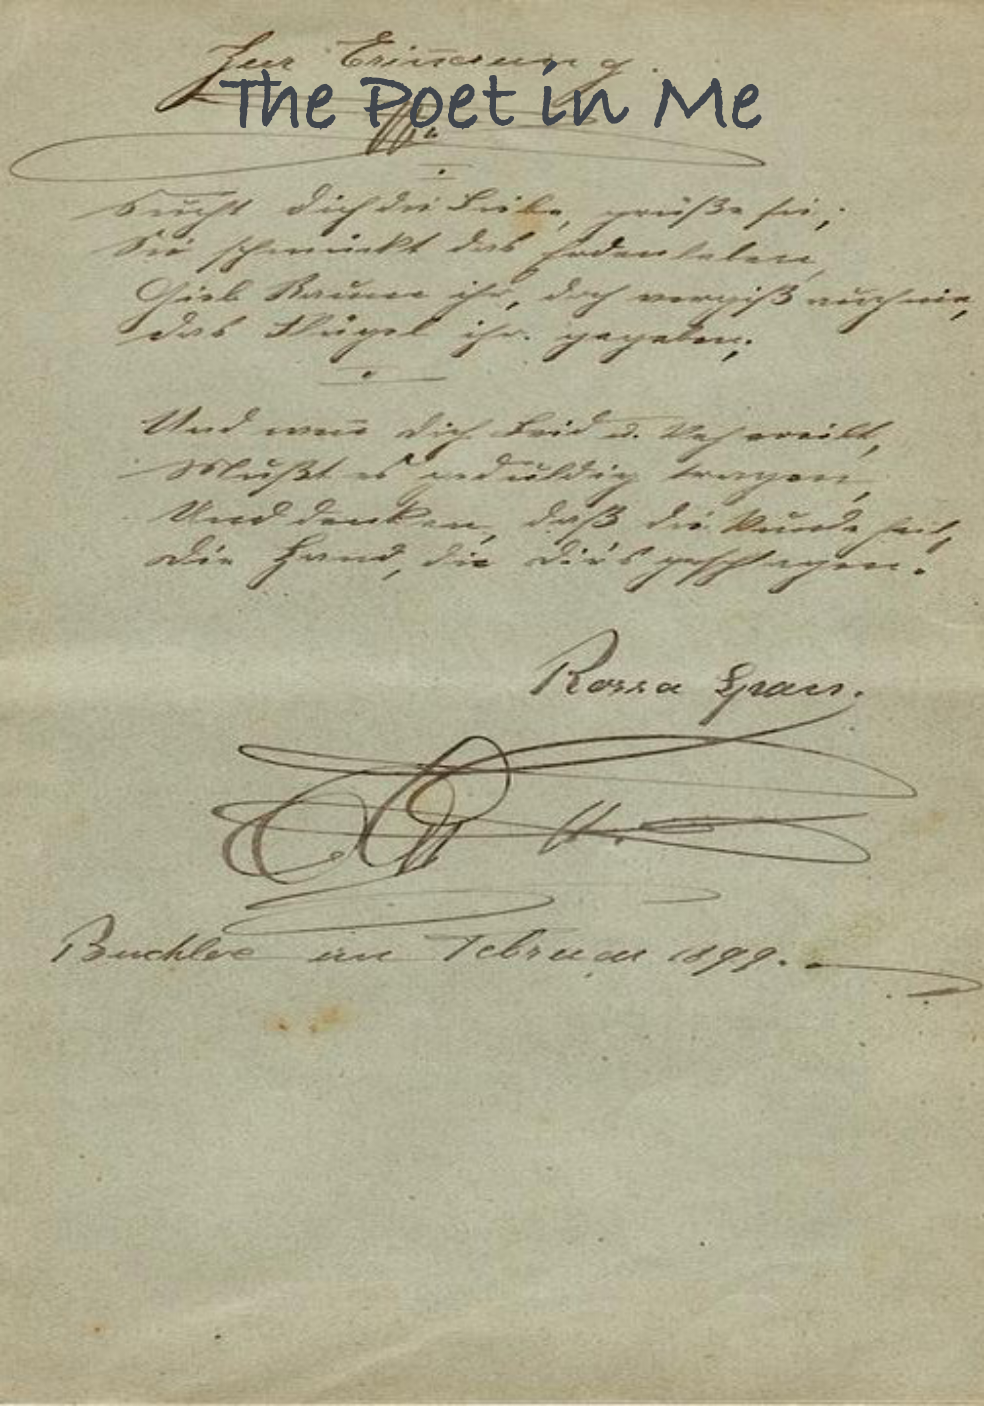 Zur Erinnerung.
The Poet in Me
Sucht dich die Liebe, grüße sie;
Sie schmückt das Erdenleben,
Gieb Raum ihr, doch vergiß auch nie,
das Flügel ihr gegeben;
Und wen̄ dich Leid u. Weh ereilt,
Mußt es geduldig tragen,
Und denken, daß die Wunde heilt,
Die Hand, die dir's geschlagen.
Rosa
Buchloe im Februar 1899.